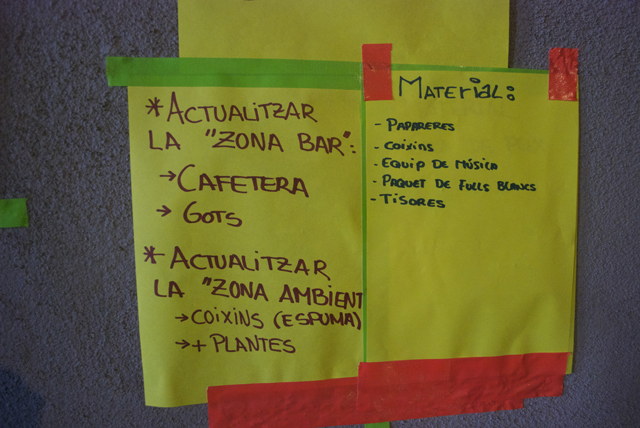 * ACTUALITZAR
LA "ZONA BAR":
→ CAFETERA
→ GOTS
* ACTUALITZAR
LA "ZONA AMBIENT
→ COIXINS (ESPUMA)
→ + PLANTES
MATERIAL:
- PAPARERES
- COIXINS
- EQUIP DE MÚSICA
- PAQUET DE FULLS BLANCS
- TISORES